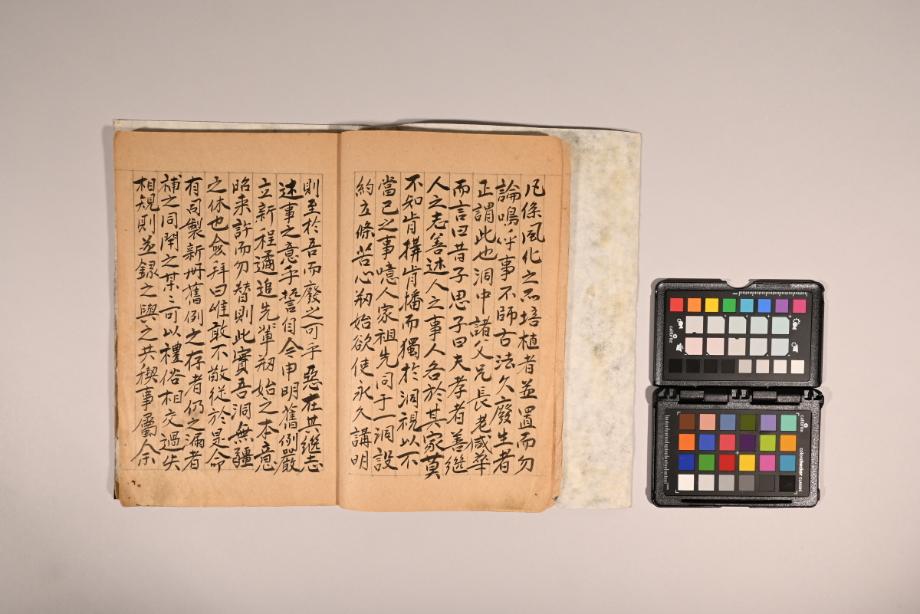 凡係風化之不培植者並置而勿
論嗚呼事不師古法久廢生者
正謂此也洞中諸父兄長老咸萃
而言曰昔子思子曰夫孝者善継
人之志善述人之事人各於其家莫
不如肯搆肯播而獨於洞視以不
當己之事噫人家祖先同于一洞設
約立條苦心刱始欲使永久講明
則至於吾而廢之可乎惡在其継志
述事之意乎誓自今申明舊例嚴
立新程遹追先輩刱始之本意
昭来許而勿替則此實吾洞無疆
之休也僉拜曰唯敢不敬從於是命
有司製新冊舊例之存者仍之漏者
補之同閈之某〻可以禮俗相交過失
相規則並録之與之共稧事屬余